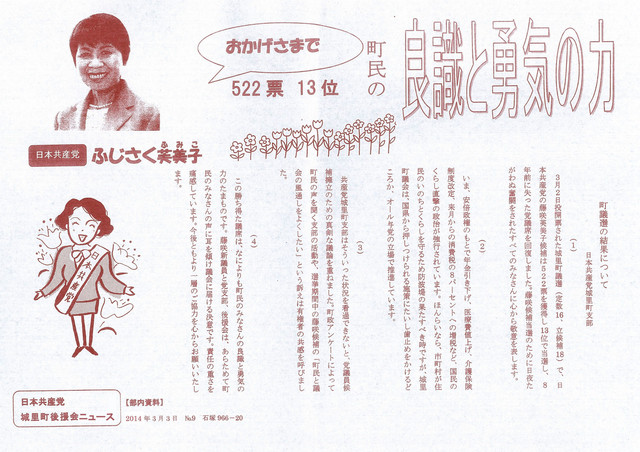 良識と勇気の力
町民の
おかげさまで
522票 13位
日本共産党
ふじさく芙美子
ふみこ
町議選の結果について
日本共産党城里町支部
(1)
3月2日投開票された城里町議選(定数16、立候補18)で、日
本共産党の藤咲芙美子候補は522票を獲得し13位で当選し、8
年前に失った党議席を回復しました。藤咲候補当選のために日夜た
がわぬ奮闘をされたすべてのみなさんに心から敬意を表します。
(2)
いま、安倍政権のもとで年金引き下げ、医療費値上げ、介護保険
制度改定、来月からの消費税の8パーセントへの増税など、国民の
くらし直撃の政治が強行されています。ほんらいなら、市町村が住
民のいのちとくらしを守るため防波堤の果たすべき時ですが、城里
町議会は、国県から押しつけられる施策にたいし歯止めをかけるど
ころか、オール与党の立場で推進しています。
(3)
共産党城里町支部はそういった状況を看過できないと、党議員候
補擁立のための真剣な議論を重ねました。町政アンケートによって
町民の声を聞く支部の活動や、選挙期間中の藤咲候補の「町民と議
会の風通しをよくしたい」という訴えは有権者の共感を呼びまし
た。
(4)
この勝ち得た議席は、なにより町民のみなさんの良識と勇気の
力のたまものです。藤咲新議員と党支部、後援会は、あらためて町
民のみなさんの声に耳を傾け議会に届ける決意です。責任の重さを
痛感しています。今後ともより一層のご協力を心からお願いいたし
ます。
日本共産党
日本共産党
城里町後援会ニュース
【部内資料】
2014年3月3日 №9 石塚966-20